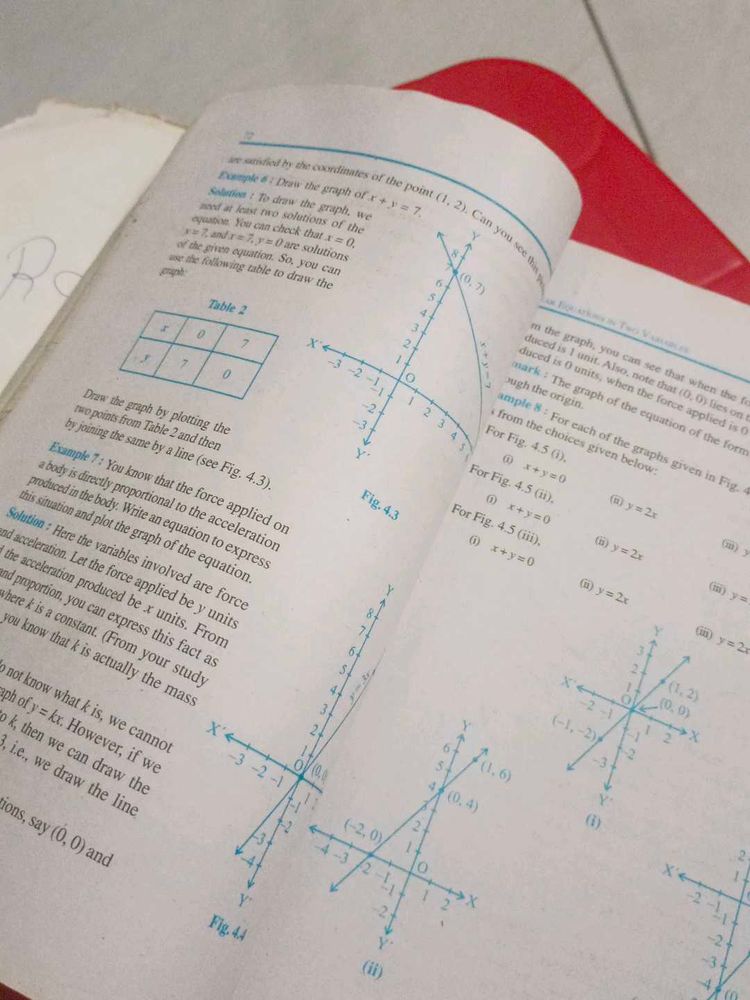 72
are satisfied by the coordinates of the point (1, 2). Can you see this
Example 6 : Draw the graph of x + y = 7.
Solution : To draw the graph, we
need at least two solutions of the
equation. You can check that x = 0,
y = 7, and x = 7, y = 0 are solutions
of the given equation. So, you can
use the following table to draw the
graph:
Table 2
x 0 7
y 7 0
Draw the graph by plotting the
two points from Table 2 and then
by joining the same by a line (see Fig. 4.3).
Y
8
7
(0, 7)
6
5
4
3
2
1
X′ –3 –2 –1 O 1 2 3 4 5
–1
–2
–3
Y′
x + y = 7
Fig. 4.3
Example 7 : You know that the force applied on
a body is directly proportional to the acceleration
produced in the body. Write an equation to express
this situation and plot the graph of the equation.
Solution : Here the variables involved are force
and acceleration. Let the force applied be y units
the acceleration produced be x units. From
and proportion, you can express this fact as
where k is a constant. (From your study
you know that k is actually the mass
do not know what k is, we cannot
graph of y = kx. However, if we
to k, then we can draw the
3, i.e., we draw the line
tions, say (0, 0) and
Y
8
7
6
5
4
3
2
1
X′ –3 –2 –1 O (0, 0
1
–1
–2
–3
–4
Y′
Fig. 4.4
EQUATIONS IN TWO VARIABLES
m the graph, you can see that when the fo
duced is 1 unit. Also, note that (0, 0) lies on t
duced is 0 units, when the force applied is 0
mark : The graph of the equation of the form
ough the origin.
ample 8 : For each of the graphs given in Fig. 4
from the choices given below:
For Fig. 4.5 (i),
(i) x + y = 0 (ii) y = 2x (iii) y
For Fig. 4.5 (ii),
(i) x + y = 0 (ii) y = 2x (iii) y =
For Fig. 4.5 (iii),
(i) x + y = 0 (ii) y = 2x (iii) y = 2x
Y
3
2
1
(1, 2)
(0, 0)
X′ –2 –1 1 2 X
(–1, –2)
–1
–2
–3
Y′
(i)
Y
6
5
(1, 6)
4
(0, 4)
3
2
1
(–2, 0)
X′ –4 –3 –2 –1 O 1 2 X
–1
–2
Y′
(ii)
2
1
X′ –2 –1
–1
–2
–3
–4
(0,